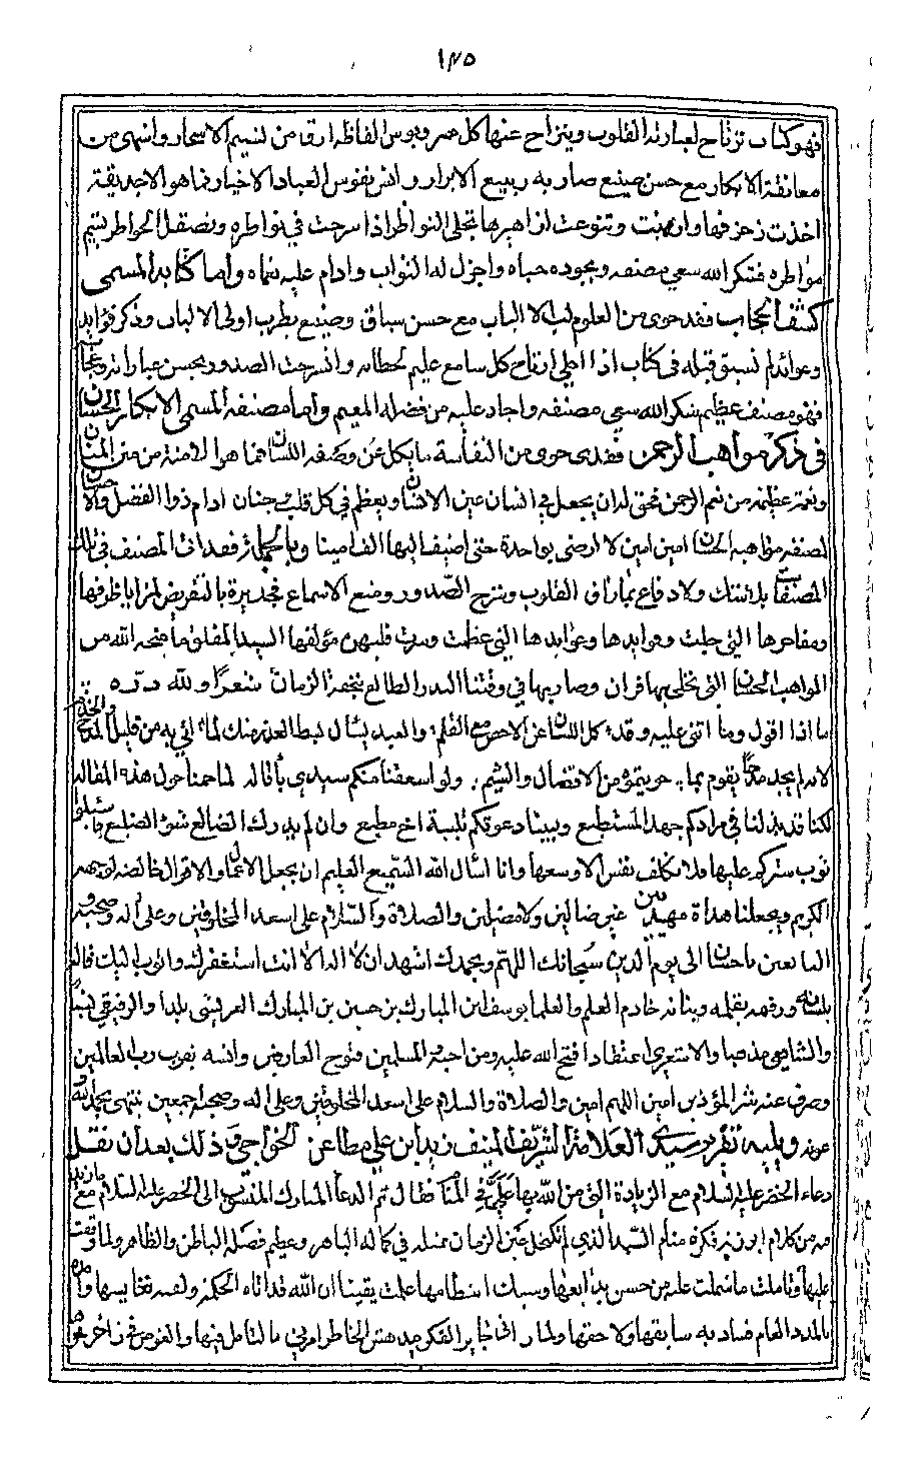 ١٢٥
فهو كتاب ترتاح لعبارته القلوب وينزاح عنها كل هم وبوس الفاظه ارق من نسيم الاسحار واشهى من
معانقة الابكار مع حسن صنيع صار به ربيع الابرار وانس نفوس العباد الاخيار فما هو الا حديقة
اخذت زخرفها وازينت وتنوعت ازاهيرها تجلى النواظر اذا سرحت في نواظره وتصقل الخواطر بتيم
مواطره فشكر الله سعي مصنفه وبجوده حباه واجزل له الثواب وادام عليه نعماه واما كتابه المسمى
كشف الحجاب فقد حوى من العلوم لب الالباب مع حسن سباق وصنيع يطرب اولى الالباب وذكر فوايد
وعوايد لم تسبق قبله في كتاب اذا املى ارتاح كل سامع عليم لخطابه وانشرحت الصدور بحسن عباراته
فهو مصنف عظيم شكر الله سعي مصنفه واجاد عليه من فضله العميم واما مصنفه المسمى الابكار الحسان
في ذكر مواهب الرحمن فقد حوى من النفاسة ما يكل عن وصفه اللسان فما هو الا منة من منن المنان
ونعمة عظيمة من نعم الرحمن فحق له ان يجعل في انسان عين الانسان ويعظم في كل قلب وجنان ادام ذو الفضل والاحسان
لمصنفه مواهبه الحسان امين امين لا ارضى بواحدة حتى اضيف اليها الف امينا وبالجملة فقد ات المصنف في تلك
المصنفات بلا شك ولا دفاع بما راق القلوب وشرح الصدور ومتع الاسماع فجديرة بالتقريض لمزايا ظرفها
ومفاخرها التي جلت وفوايدها وعوايدها التي عظمت
المواهب الحسان التي تحلى بها فزان وصار بها في وقتنا البدر الطالع بتحفة الزمان شعرا ولله دره
ماذا اقول وما اثني عليه وقد كل اللسان عن الاحصى مع القلم والعبد يسأل بسط العذر منك لما اتى به من قليل المدح والخدم
لانه لم يجد مدحا يقوم بما حويتموه من الافضال والشيم ولو اسعفنا منكم سيدي باقاله لما حمنا حول هذه المقاله
لكنا قد بذلنا في مرادكم جهد المستطيع وبينا دعوتكم تلبية اخ مطيع وان لم يدرك الضالع شئو الضليع
ثوب ستركم عليها فلا تكلف نفس الا وسعها وانا اسأل الله السميع العليم ان يجعل الاعمال والاقوال خالصة لوجهه
الكريم ويجعلنا هداة مهديين غير ضالين ولا مضلين والصلاة والسلام على اسعد المخلوقين وعلى آله وصحبه
التابعين باحسان الى يوم الدين سبحانك اللهم وبحمدك اشهد ان لا اله الا انت استغفرك واتوب اليك قاله
بلسانه ورقمه بقلمه وبنانه خادم العلم والعلما يوسف ابن المبارك بن حسين بن المبارك
والشافعي مذهبا والاشعري اعتقادا فتح الله عليه ومن احبه والمسلمين فتوح العارفين وانسه بقرب رب العالمين
وصرف عنه شر المؤذين امين اللهم امين والصلاة والسلام على اسعد المخلوقين وعلى اله وصحبه اجمعين انتهى بحمد الله
عونه ويليه تقرير سيدي العلامة الشريف المنيف زيد ابن علي مطاعن الخواجي وذلك بعد ان نقل
دعاء الخضر عليه السلام مع الزيادة التي من الله بها علي في المنام قال تم الدعاء المبارك المنسوب الى الخضر عليه السلام مع
من كلام ابو زيد فكرة منام السيد الذي لم تكتحل عين الزمان بمثله في كماله الباهر وعظيم فضله الباطن والظاهر ولما وقفت
عليها وتاملت ما شملت عليه من حسن بدايعها وسبك انتظامها علمت يقينا ان الله قد اتاه الحكمة
بالمدد العام فساد به سابقها ولاحقها